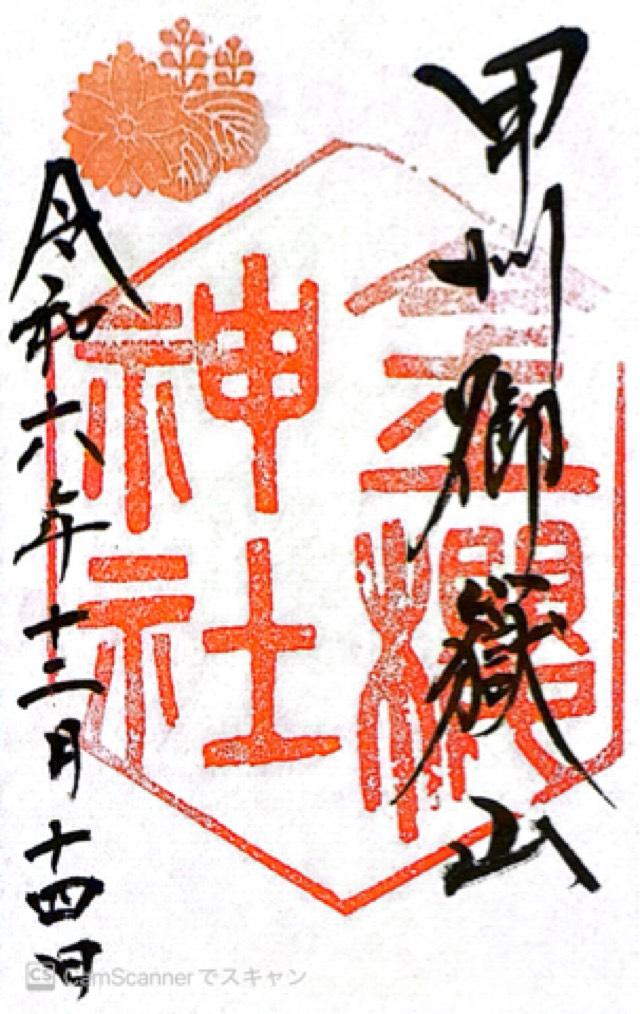 甲州御嶽山
金櫻
神社
令和六年十二月十四日
CS CamScannerでスキャン